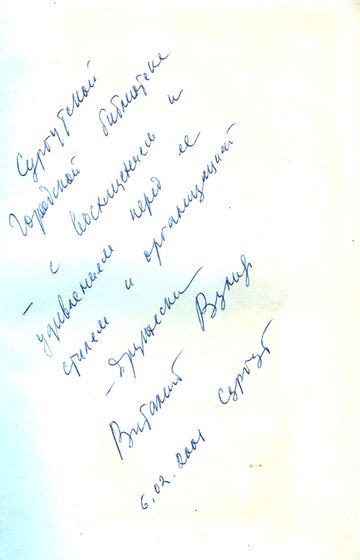 Сургутской
Городской библиотеке
– с восхищением и
удивлением перед ее
стилем и организацией
– Дружески
Виталий Вульф
6.02.2001 Сургут